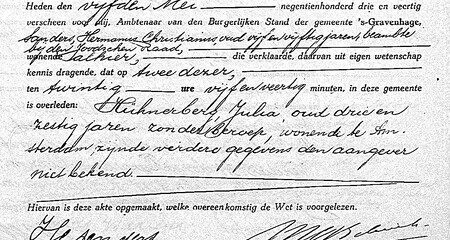 Heden den vijfden Mei negentienhonderd drie en veertig
verscheen voor mij, Ambtenaar van den Burgerlijken Stand der gemeente 's-Gravenhage,
Sanders, Hermanus Christianus oud vijf en vijftig jaren, beambte
bij den Joodschen Raad,
wonende alhier, die verklaarde, daarvan uit eigen wetenschap
kennis dragende, dat op twee dezer,
ten twintig ure vijf en veertig minuten, in deze gemeente
is overleden: Hühnerberg, Julia, oud drie en
zestig jaren zonder beroep, wonende te Am-
sterdam zijnde verdere gegevens den aangever
niet bekend.
Hiervan is deze akte opgemaakt, welke overeenkomstig de Wet is voorgelezen.